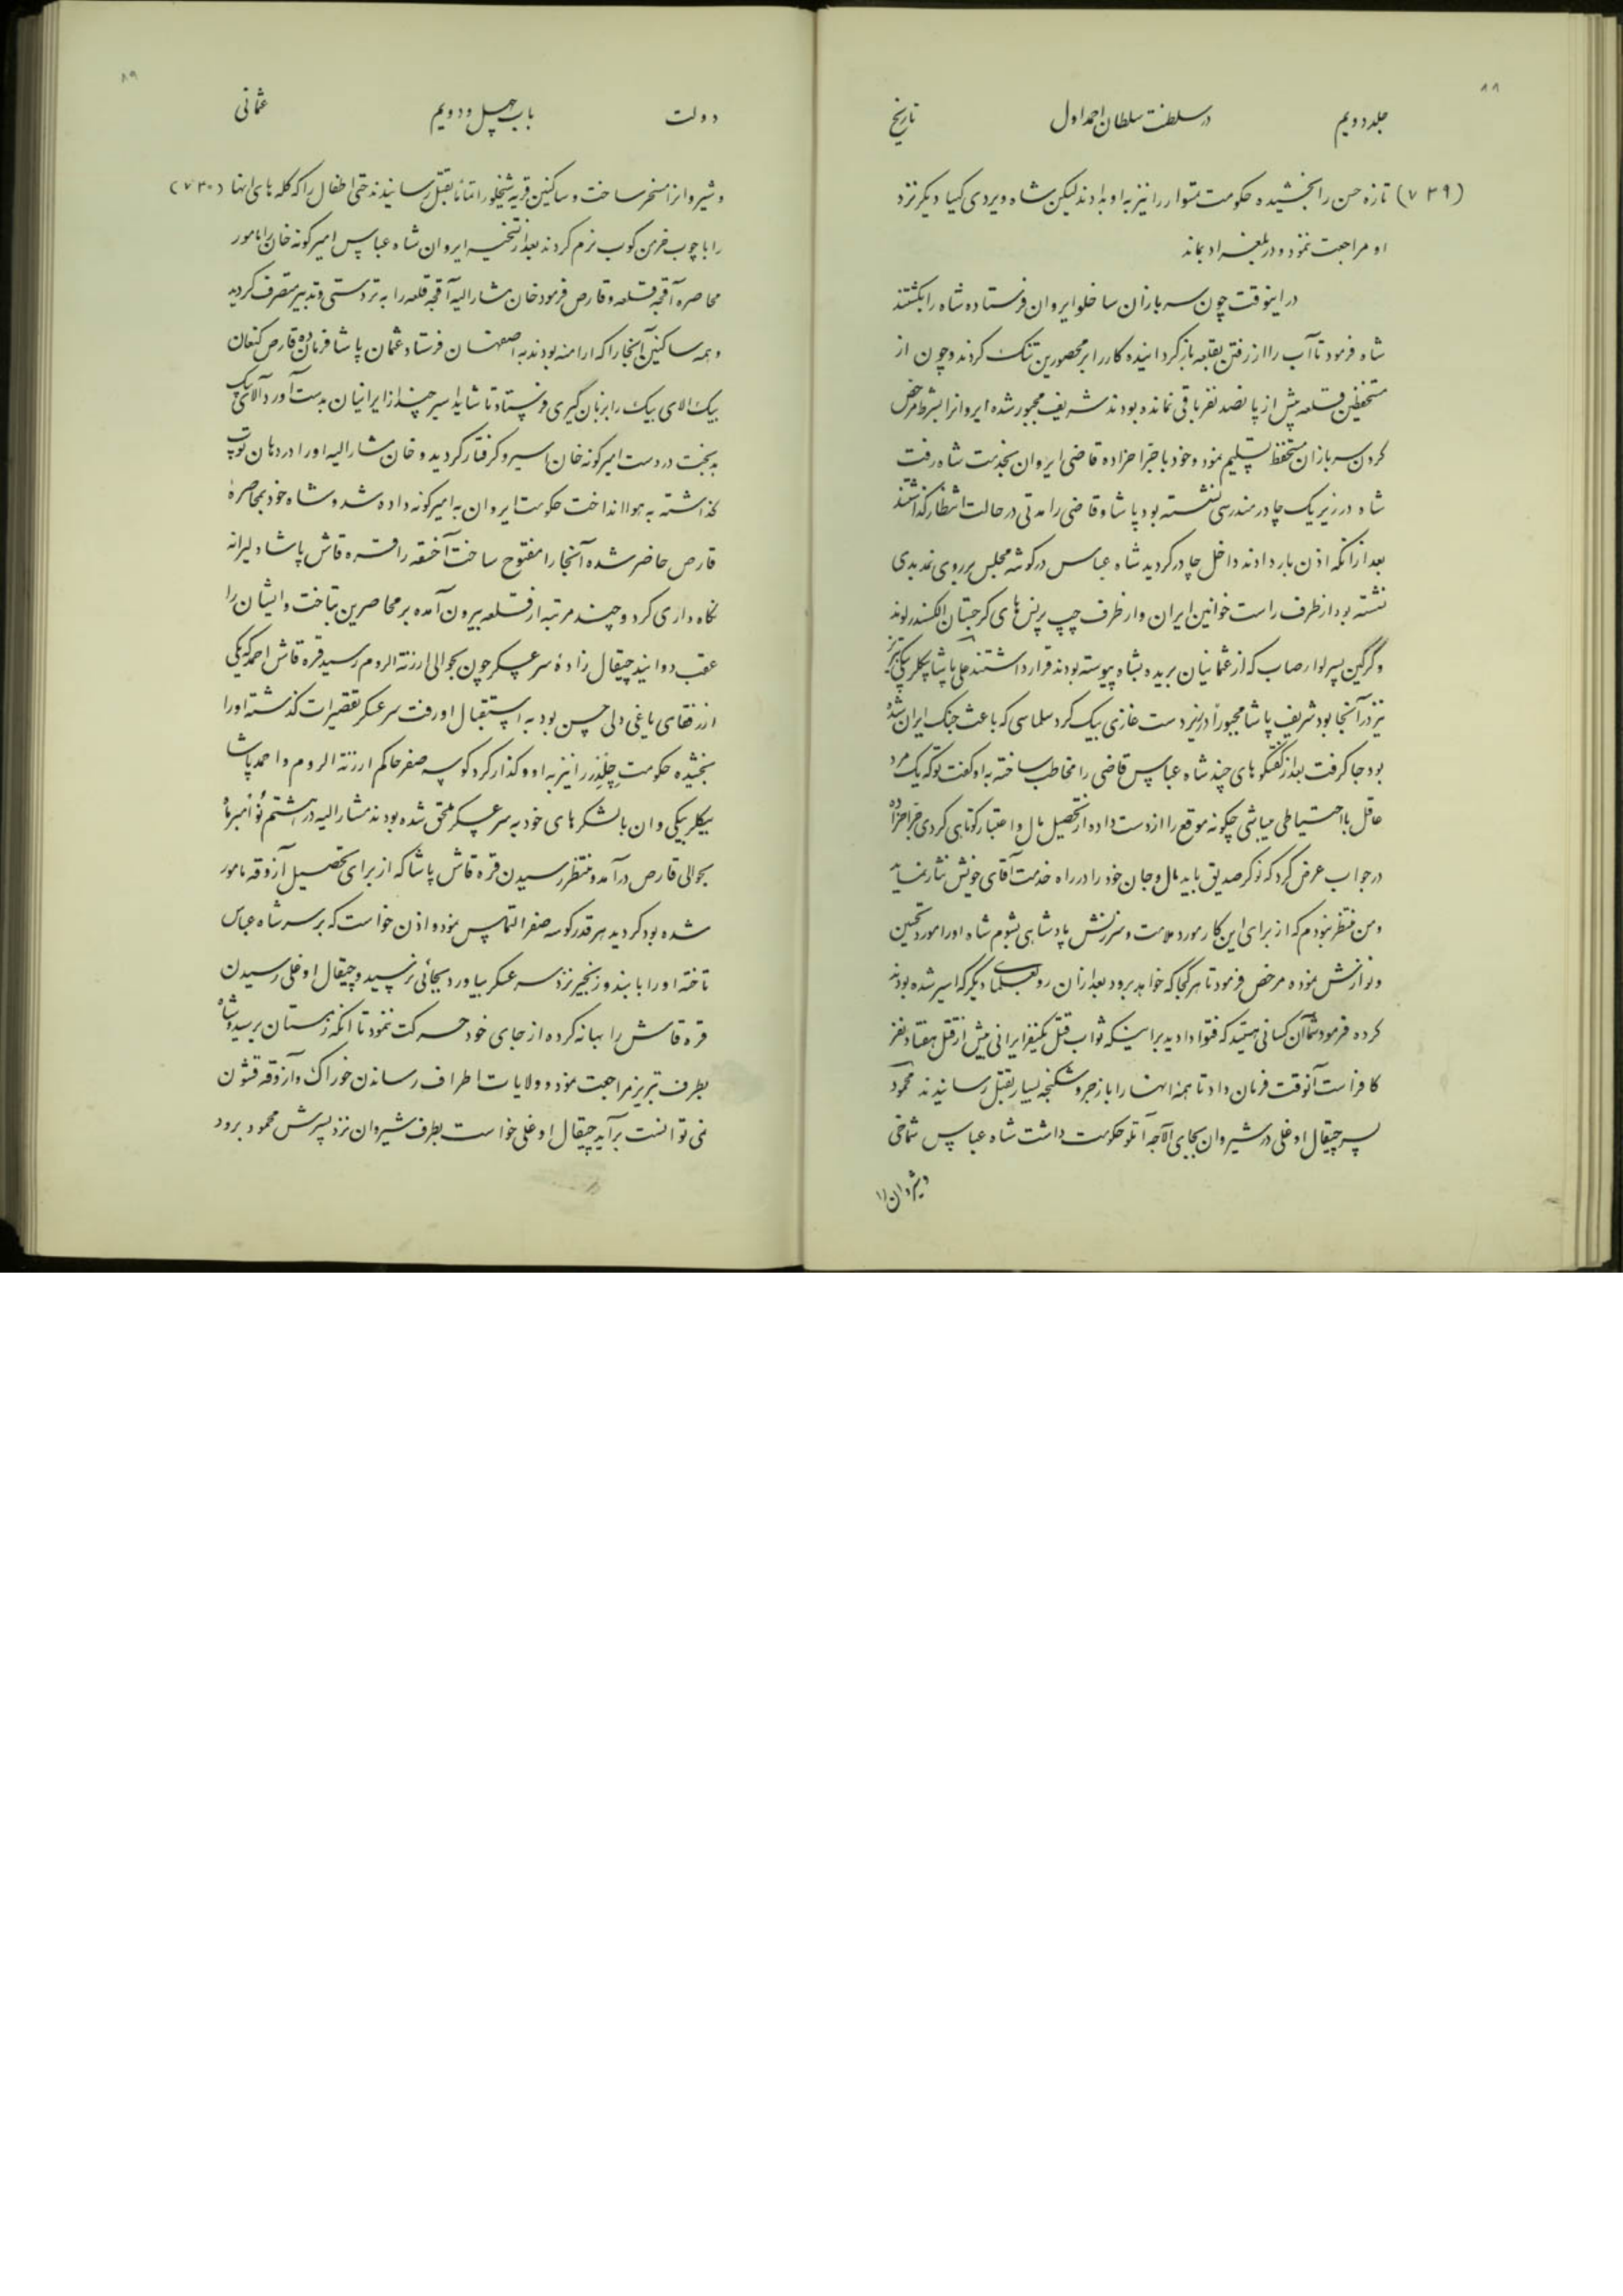 ۸۸
جلد دویم در سلطنت سلطان احمد اول تاریخ
(۷۲۹) تازه حسن را بخشیده حکومت تمشوار را نیز به او بدادند لیکن شاه ویردی کیا دیگر نزد
او مراجعت ننمود و در بلغراد بماند
در اینوقت چون سربازان ساخلو ایروان فرستاده شاه را بکشتند
شاه فرمود تا آب را از رفتن بقلعه باز گردانیده کار را بر محصورین تنک کردند و چون از
مستحفظین قلعه بیش از پانصد نفر باقی نمانده بودند شریف مجبور شده ایروانرا بشرط مرخص
کردن سربازان مستحفظ تسلیم نمود و خود با خبر احزاده قاضی ایروان بخدمت شاه رفت
شاه در زیر یک چادر مندرسی نشسته بود پاشا و قاضی را مدتی در حالت انتظار گذاشتند
بعد از آنکه اذن بار دادند داخل چادر گردید شاه عباس در گوشه مجلس بر روی نمدیدی
نشسته بود از طرف راست خوانین ایران و از طرف چپ پرنس های گرجستان الکسندر لوند
و گرگین پسر لوارصاب که از عثمانیان بریده بشاه پیوسته بودند قرار داشتند علی پاشا بیکلربیکی تبریز
نیز در آنجا بود شریف پاشا مجبوراً در زیر دست غازی بیک کرد سلماسی که باعث جنک ایران شده
بود جا گرفت بعد از گفتگوهای چند شاه عباس قاضی را مخاطب ساخته به او گفت تو که یک مرد
عاقل با احتیاطی میباشی چگونه موقع را از دست داده از تحصیل مال و اعتبار کوتاهی کردی خبر احزاده
در جواب عرض کرد که نوکر صدیق باید مال و جان خود را در راه خدمت آقای خویش نثار نماید
و من منتظر نبودم که از برای این کار مورد ملامت و سرزنش پادشاهی بشوم شاه او را مورد تحسین
و نوازش نموده مرخص فرمود تا هر کجا که خواهد برود بعد از آن رو بعلمای دیگر که اسیر شده بودند
کرده فرمود شما آن کسانی هستید که فتوا دادید بر اینکه ثواب قتل یکنفر ایرانی بیش از قتل هفتاد نفر
کافر است آنوقت فرمان داد تا همه آنها را با زجر و شکنجه بسیار بقتل رسانیدند محمود
پسر چیقال اوغلی در شیروان بجای آلاجه آتلو حکومت داشت شاه عباس شماخی
و شیروان را
۸۹
دولت باب چهل و دویم عثمانی
و شیروانرا مسخر ساخت و ساکنین قریه شیخلور را تماماً بقتل رسانیدند حتی اطفال را که کله های آنها (۷۳۰)
را با چوب خرمن کوب نرم کردند بعد از تسخیر ایروان شاه عباس امیر گونه خان را مامور
محاصره آقچه قلعه و قارص فرمود خان مشارالیه آقچه قلعه را به تردستی و تدبیر متصرف گردید
و همه ساکنین آنجا را که ارامنه بودند به اصفهان فرستاد عثمان پاشا فرمانده قارص کنعان
بیک الای بیک را بزبان گیری فرستاد تا شاید اسیر چند از ایرانیان بدست آورد آلای بیک
بدبخت در دست امیر گونه خان اسیر و گرفتار گردید و خان مشارالیه او را در دهان توپ
گذاشته به هوا انداخت حکومت ایروان به امیر گونه داده شد و شاه خود بمحاصرهٔ
قارص حاضر شده آنجا را مفتوح ساخت آخسقه را قره قاش پاشا دلیرانه
نگاه داری کرد و چند مرتبه از قلعه بیرون آمده بر محاصرین بتاخت و ایشان را
عقب دوانید چیقال زادهٔ سرعسکر چون بحوالی ارزنة الروم رسید قره قاش احمد که یکی
از رفقای یاغی دلی حسن بود به استقبال او رفت سرعسکر تقصیرات گذشته او را
بخشیده حکومت چلدر را نیز به او واگذار کرد کوسه صفر حاکم ارزنة الروم و احمد پاشا
بیکلربیکی وان با لشکرهای خود به سرعسکر ملحق شده بودند مشارالیه در هشتم نوامبر ماه
بحوالی قارص درآمد و منتظر رسیدن قره قاش پاشا که از برای تحصیل آزوقه مامور
شده بود گردید هر قدر کوسه صفر التماس نمود و اذن خواست که بر سر شاه عباس
تاخته او را با بند و زنجیر نزد سرعسکر بیاورد بجائی نرسید و چیقال اوغلی رسیدن
قره قاش را بهانه کرده از جای خود حرکت ننمود تا آنکه زمستان برسید و شاه
بطرف تبریز مراجعت نمود و ولایات اطراف رساندن خوراک و آزوقه قشون
نمی توانست برآید چیقال اوغلی خواست بطرف شیروان نزد پسرش محمود برود